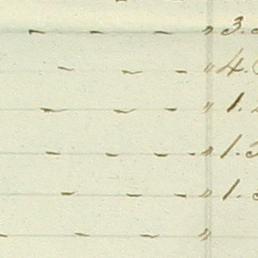 - - - " 3.
- - - " 4.
- - - " 1.
- - - - " 1.3
- - - " 1.
- - - "